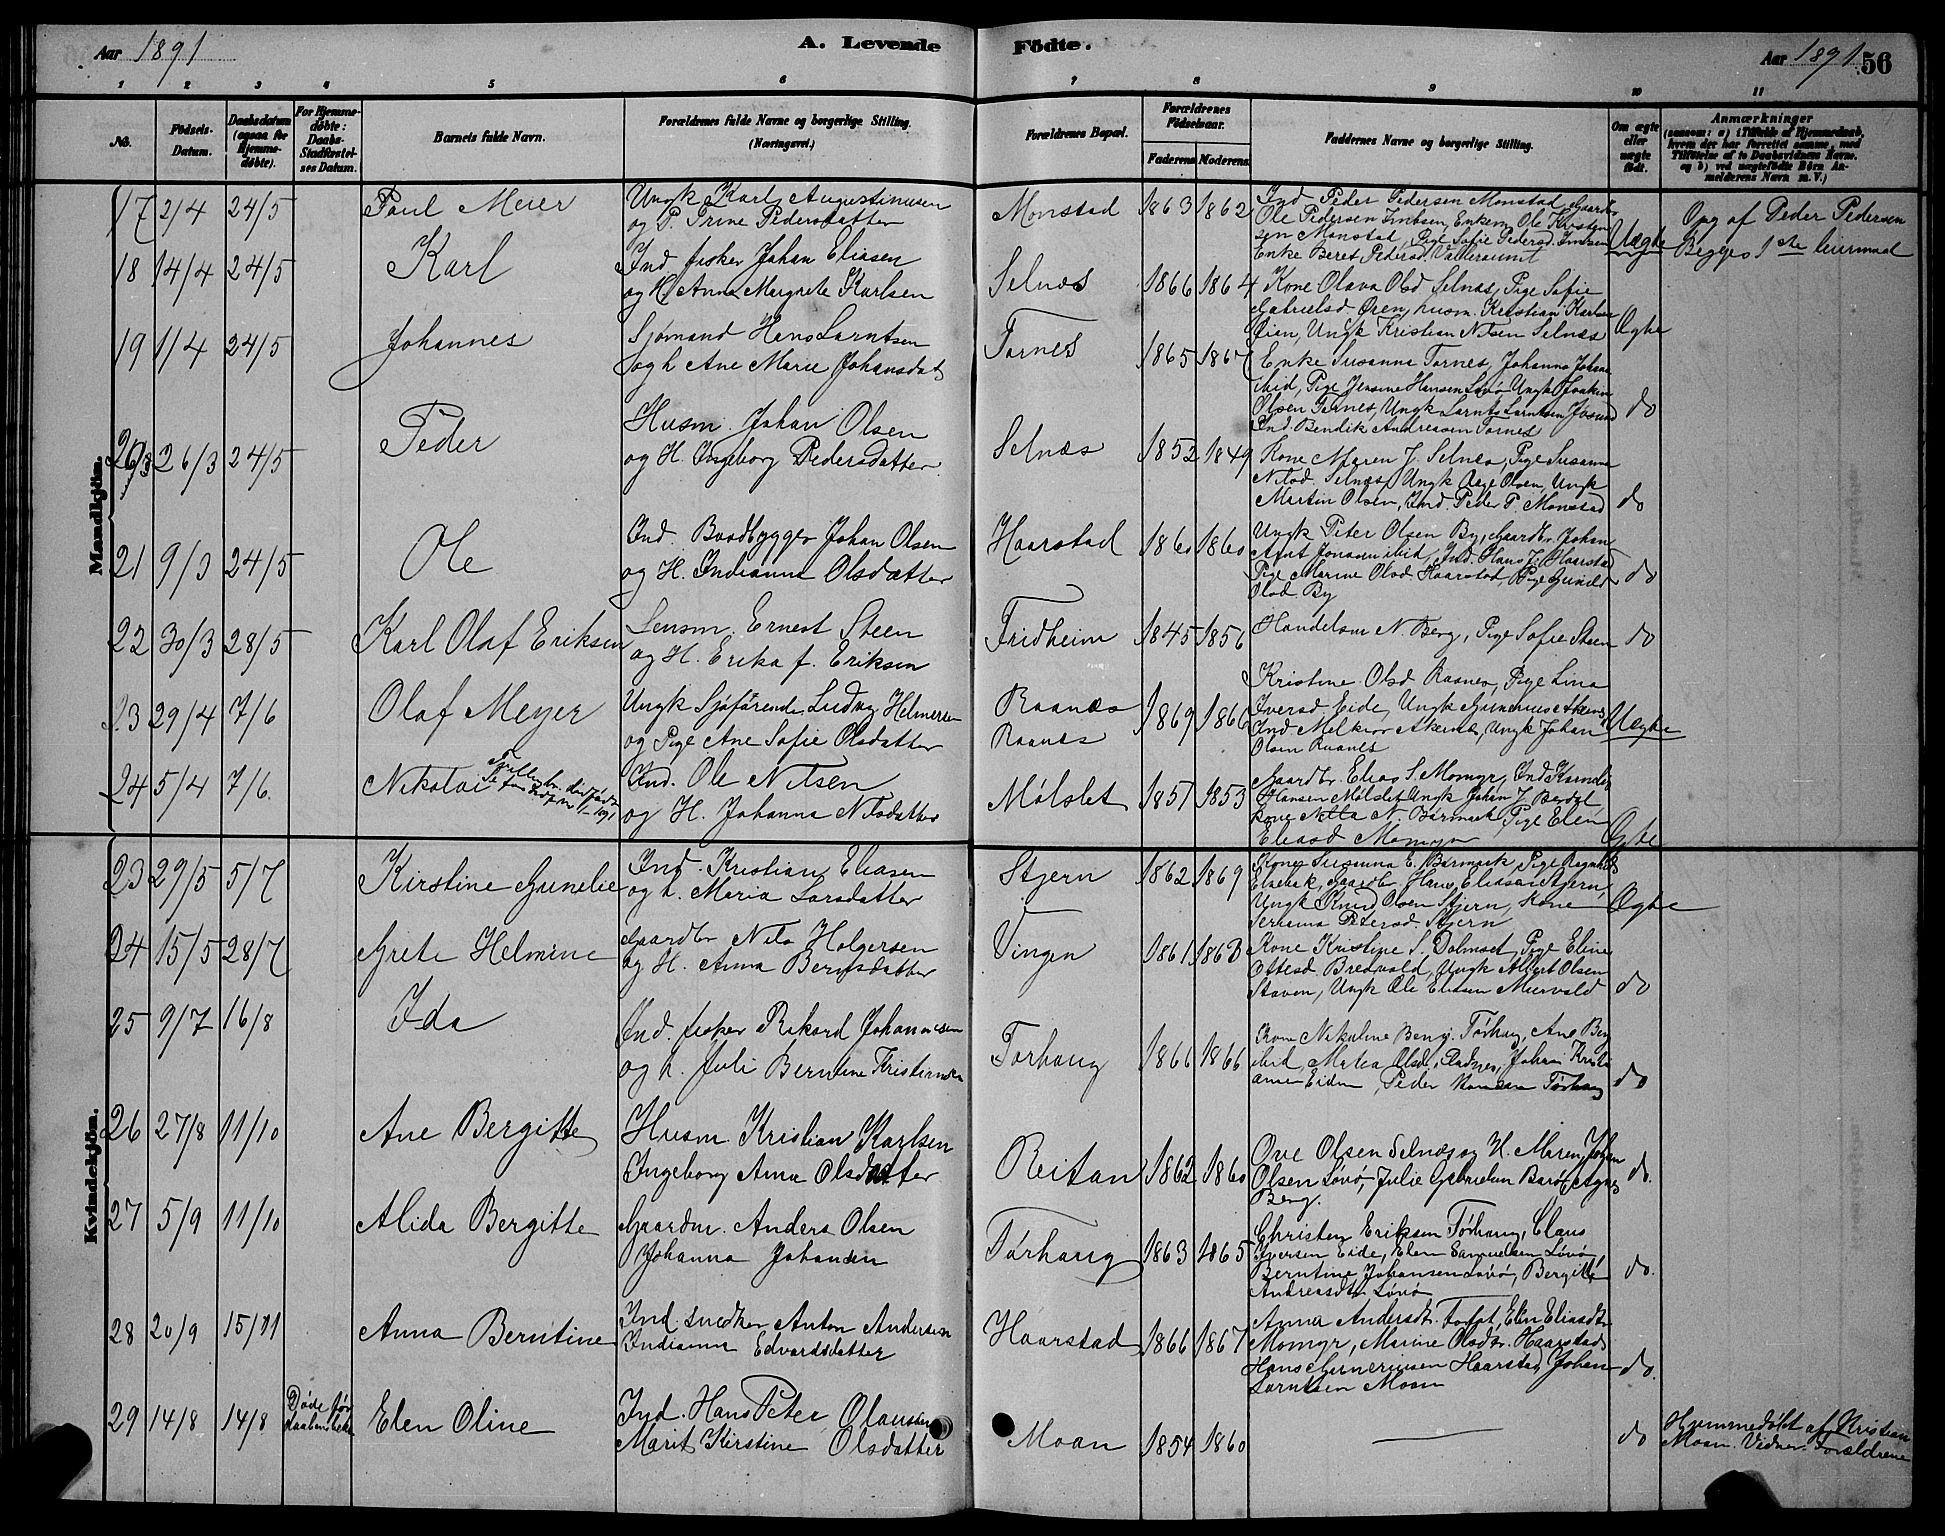 Aar 1891
A. Levende Fødte.
Aar 1891 56
1 2 3 4 5 6 7 8 9 10 11
No.
Fødsels-Datum.
Daabsdatum (ogsaa for Hjemmedøbte).
For Hjemmedøbte: Daabs-Stadfæstelses Datum.
Barnets fulde Navn.
Forældrenes fulde Navne og borgerlige Stilling. (Næringsvei.)
Forældrenes Bopæl.
Forældrenes Fødselsaar.
Faderens Moderens
Faddernes Navne og borgerlige Stilling.
Om ægte eller uægte født.
Anmærkninger
Mandkjøn.
17 2/4 24/5 Paul Meier
Ungk Karl Augustinusen
og P. Trine Pedersdatter
Monstad 1863 1862
Ind Peder Pedersen Monstad, Gaardbr
Ole Pedersen
Enke Beret Pedersd. Valleraunet
Uægte
Opg af Peder Pedersen
Begges 1ste leiermaal
18 14/4 24/5 Karl
Ind fisker Johan Eliasen
og H. Anna Margrete Karlsen
Selnæs 1866 1864
Kone Olava Olsd Selnæs, Pige Sofie
Gabrielsd Øren, husm. Kristian Karlsen
Ungk Kristian Nilsen Selnæs
Ægte
19 1/4 24/5 Johannes
Sjømand Hans Larntsen
og h Ane Marie Johansdat
Tarnes 1865 1867
Enke Susanna Tarnes, Johanna Johans
ibid, Pige Jensine Hansen Løvø, Ungk Joakim
Olsen Tarnes, Ungk Larnts Larntsen
Ind. Bendik Andreasen Tarnes
do
20 26/3 24/5 Peder
Husm. Johan Olsen
og H. Ingeborg Pedersdatter
Selnæs 1852 1849
Kone Maren J. Selnæs, Pige Susanna
Nilsd Selnæs, Ungk Aage Olsen, Ungk
Martin Olsen, Ind. Peder P. Monstad
do
21 9/3 24/5 Ole
Ind. Baadbygger Johan Olsen
og H. Indianna Olsdatter
Haarstad 1860 1860
Ungk Peter Olsen By, Gaardbr. Johan
Arnt Jonsen ibid, Ind. Hans J. Haarstad
Pige Marine Olsd. Haarstad, Pige Gunild
Olsd By
do
22 30/3 28/5 Karl Olaf Eriksen
Lensm. Ernest Steen
og H. Erika f. Eriksen
Fridheim 1845 1856
Handelsm N. Berg, Pige Sofie Steen
do
23 29/4 7/6 Olaf Meyer
Ungk Sjøfarende Ludvig Helmersen
og Pige Ane Sofie Olsdatter
Raanæs
Raanes
1869 1866
Kristine Olsd Raanes, Pige Lina
Iversd. Eide, Ungk Gunerius
Ind Melkior, Ungk Johan
Olsen Raanes
Uægte
24 5/4 7/6 Nikolai
Ind. Ole Nilsen
og H. Johanna Nilsdatter
Mølslet 1857 1853
Gaardbr. Elias S. Momyr, Ind Kornelius
Hansen Mølslet Ungk Johan J Berdal
Kone Netta N. Barmark Pige Elen
Eliasd Momyr
Ægte
Kvindekjøn.
23 29/5 5/7 Kirstine Gunelie
Ind. Kristian Eliasen
og h. Maria Larsdatter
Stjern 1862 1869
Kone Susanna E. Barmark, Pige Ragnhild
Gaardbr Hans Eliasen Stjern
Ungk Knud Olsen Stjern, Kone
Petersd. Stjern
Ægte
24 15/5 28/7 Grete Helmine
Gaardbr Nils Holgersen
og H. Anna Berntsdatter
Vingen 1861 1863
Kone Kristine S. Dalmset, Pige Eline
Ottesd. Bredvold, Ungk Albert Olsen
Staven, Ungk Ole Eliasen Mervold
do
25 9/7 16/8 Ida
Ind. fisker Rikard Johannesen
og h. Juli Berntine Kristiansen
Tørhaug 1866 1866
Kone Nikoline Benj. Tørhaug, Ane Berg
ibid, Martea Olsdt, Johan Kristi
ansen Eiden, Peder Hansen Tørhaug
do
26 27/8 11/10 Ane Bergitte
Husm. Kristian Karlsen
Ingeborg Anna Olsdatter
Reitan 1862 1860
Ove Olsen Selnæs og H. Maren, Johan
Olsen Løvø, Julie Gabrielsen Barø, Agnes
Berg.
do.
27 5/9 11/10 Alida Bergitte
Gaardm. Anders Olsen
Johanna Johansen
Tørhaug 1863 1865
Christen Eriksen Tørhaug, Claus
Iversen Eide, Elen Samuelsen Løvø,
Berntine Johansen Løvø, Bergitte
Andreasdtr Løvø
do.
28 20/9 15/11 Anna Berntine
Ind snedker Anton Andersen
Indianna Edvardsdatter
Haarstad 1866 1867
Anna Andersdt., Elen Eliasdtr
Momyr, Marine Olsdtr. Haarstad
Hans Gunneriusen Haarstad, Johan
Larntsen Moan
do.
29 14/8 14/8 Døde før daabens bekr. Elen Oline
Ind. Hans Peter Olausen
Marit Kirstine Olsdatter
Moan 1854 1860
do
Hjemmedøbt af Kristian
Moan. Vidner: Forældrene